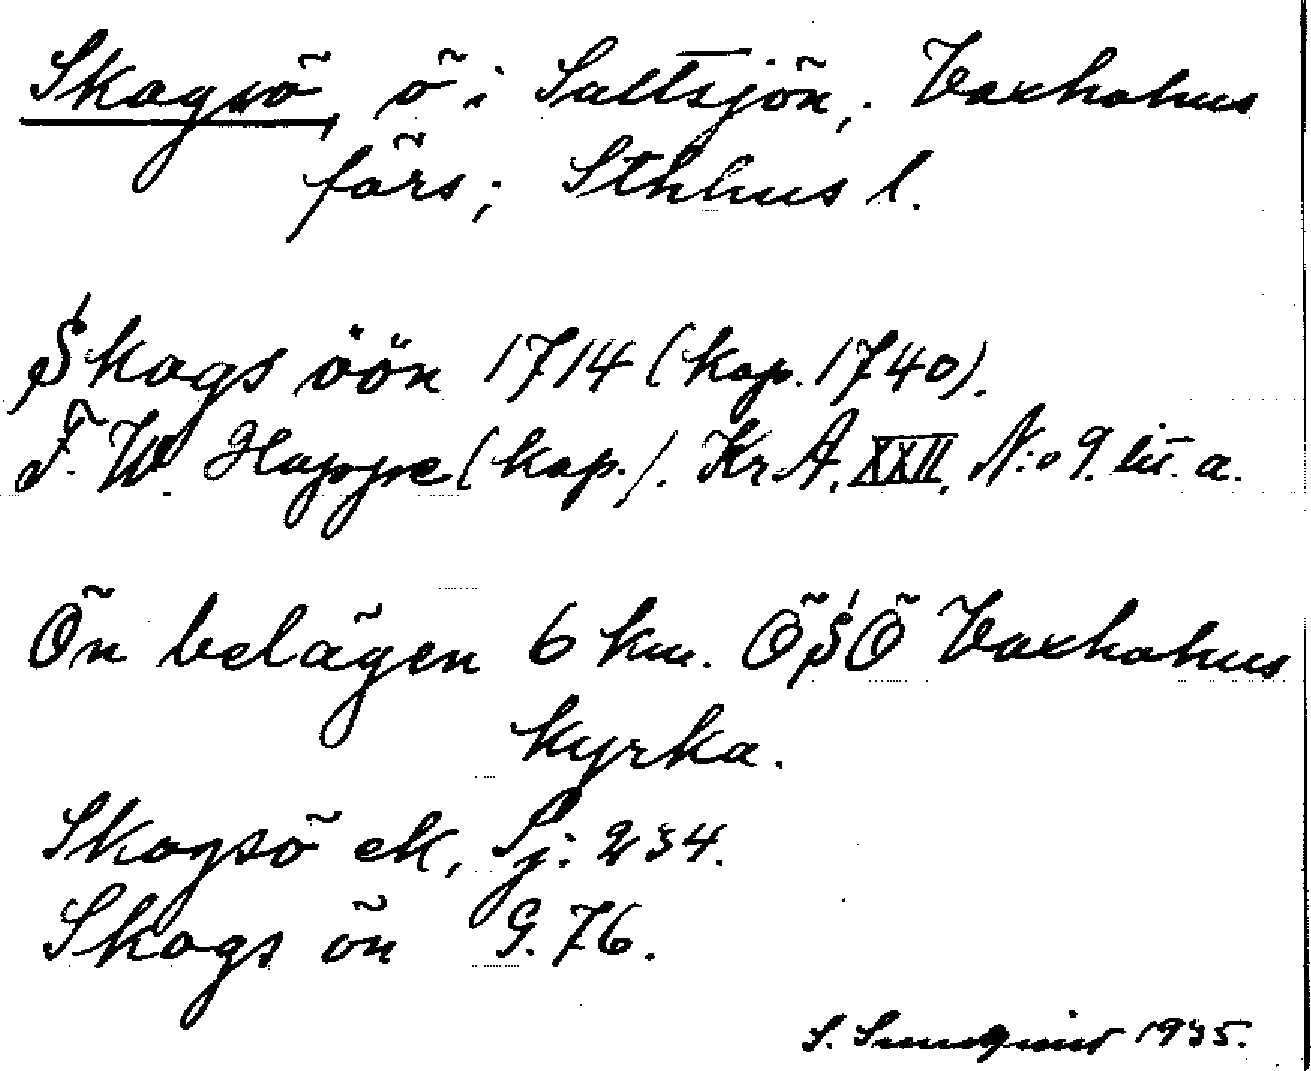 Skogsö, ö i Saltsjön, Vaxholms
förs; Sthlms l.
Skogs öön 1714 (kop. 1740).
F. W. Happe (kop.). Kr A. XXII, N:o 9. lit. a.
Ön belägen 6 km. ÖSÖ Vaxholms
kyrka.
Skogsö ek, Sj: 234.
Skogs ön G. 76.
S. Sundqvist 1935.